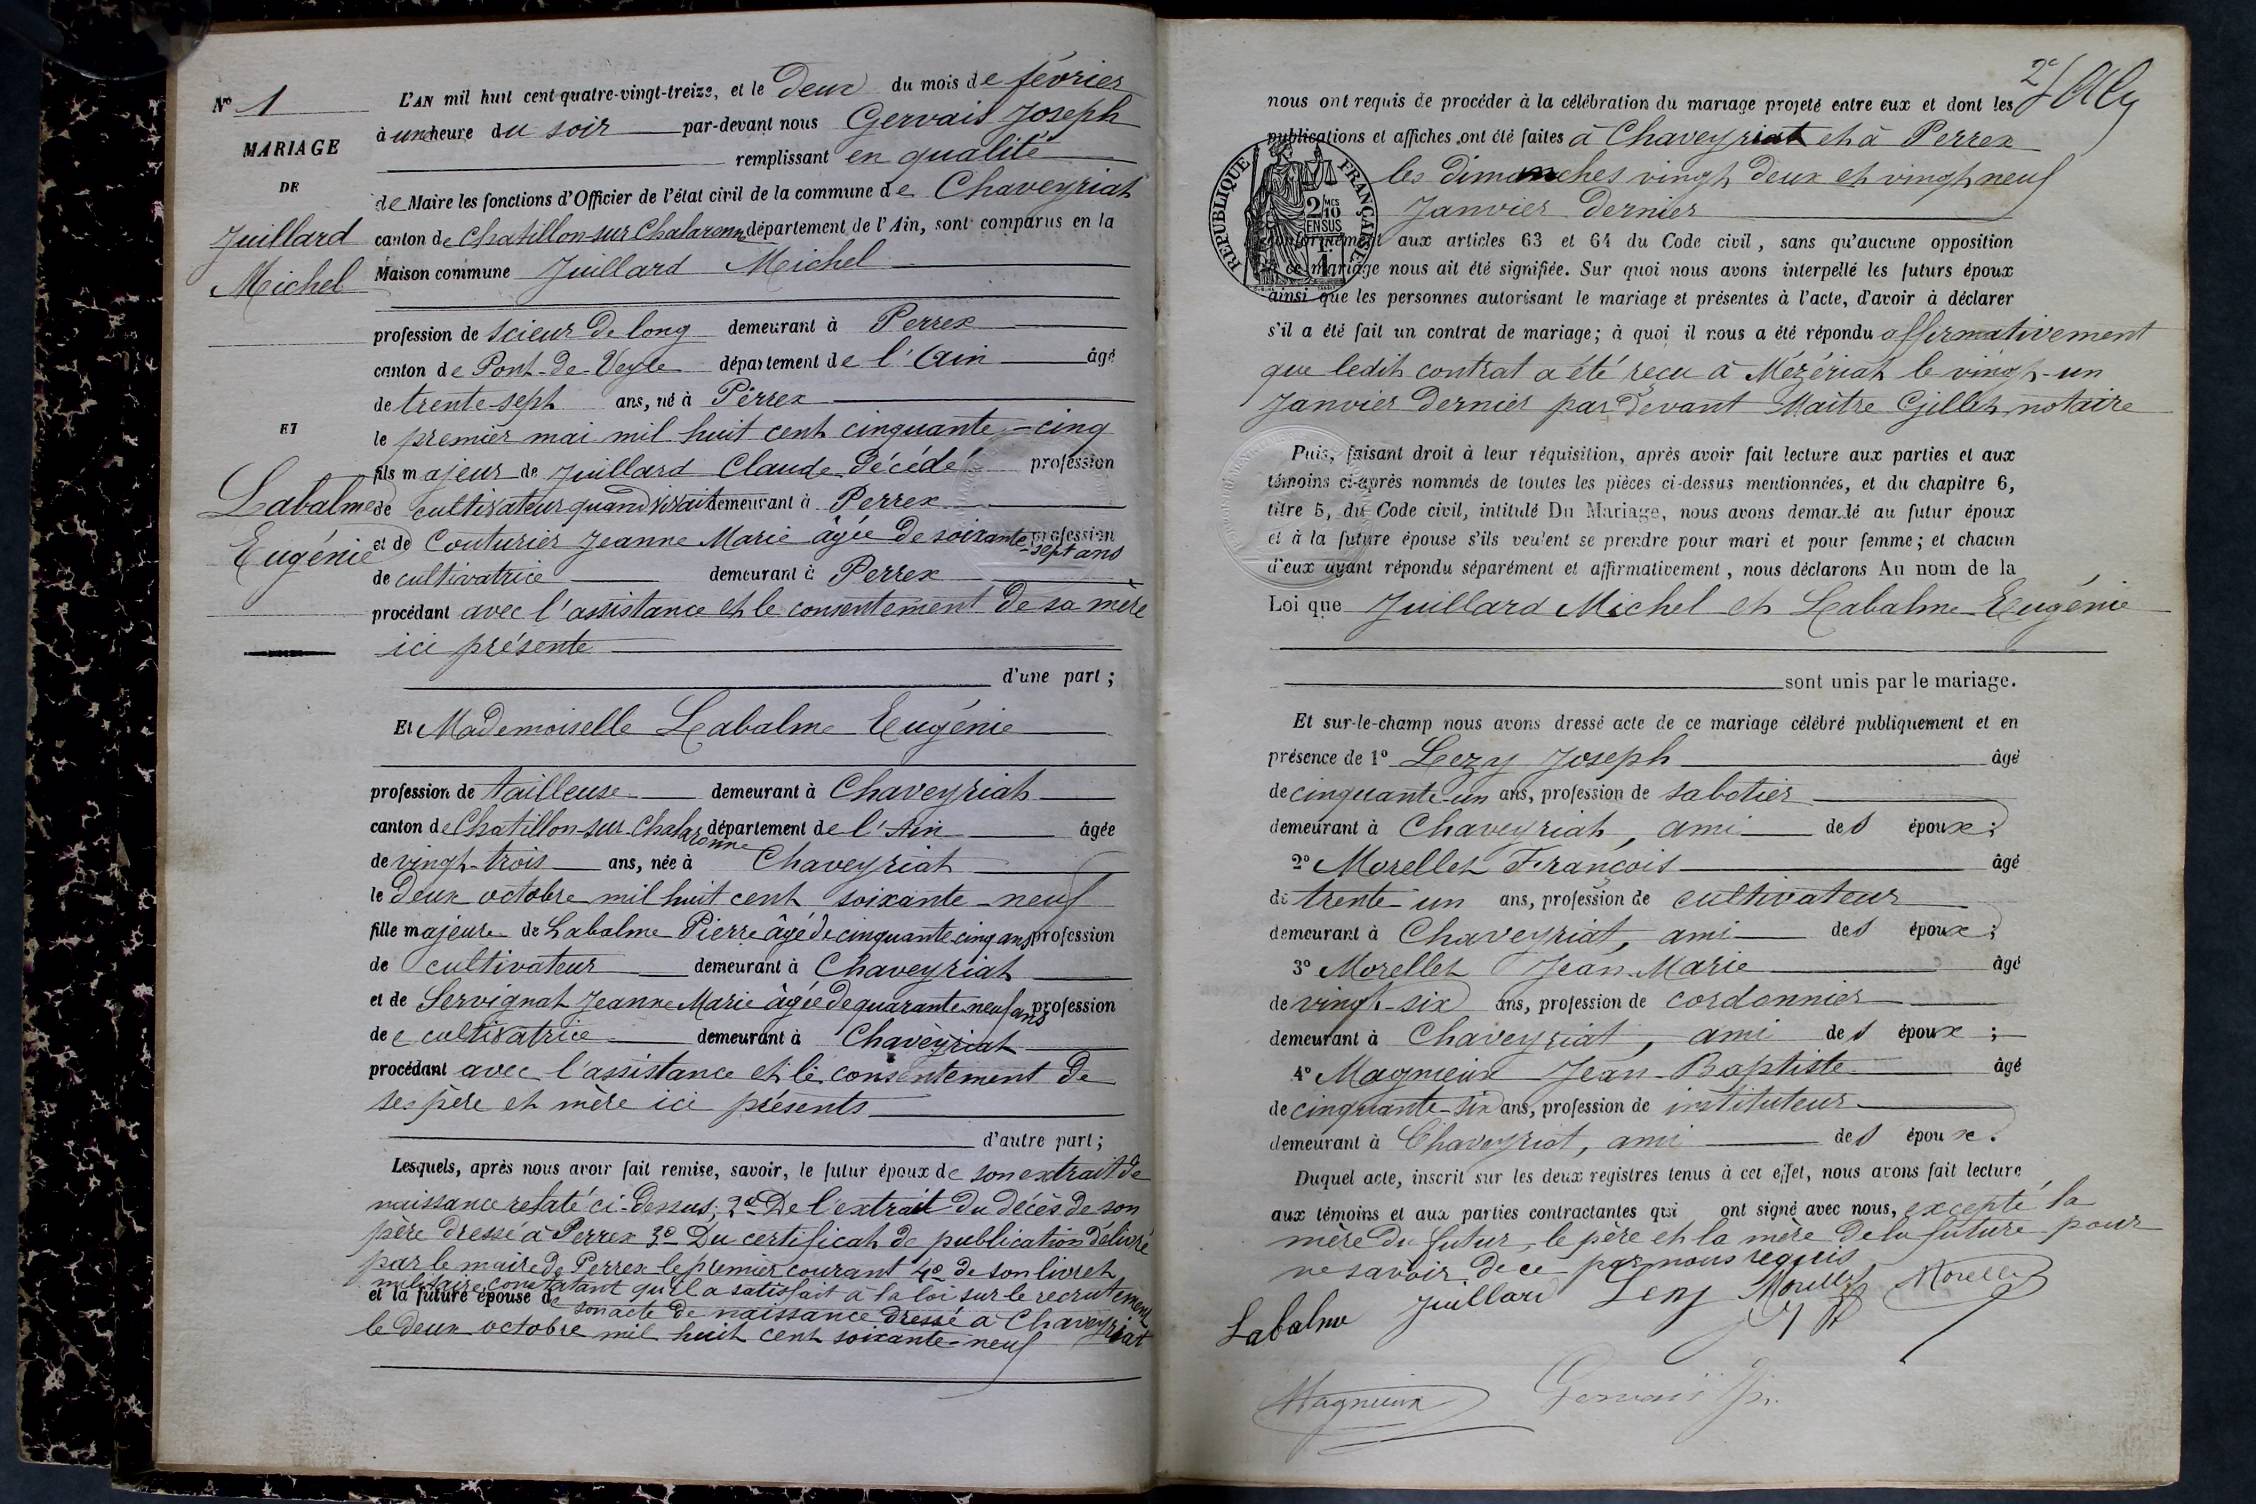 N° 1
MARIAGE
DE
Juillard
Michel
ET
Labalme
Eugénie
L'AN mil huit cent quatre-vingt-treize, et le deux du mois de février
à une heure du soir par-devant nous Gervais Joseph
remplissant en qualité
de Maire les fonctions d'Officier de l'état civil de la commune de Chaveyriat
canton de Chatillon sur Chalaronne département de l'Ain, sont comparus en la
Maison commune Juillard Michel
profession de scieur de long demeurant à Perrex
canton de Pont-de-Veyle département de l'Ain âgé
de trente-sept ans, né à Perrex
le premier mai mil huit cent cinquante-cinq
fils majeur de Juillard Claude décédé profession
de cultivateur quand vivait demeurant à Perrex
et de Couturier Jeanne Marie âgée de soixante-sept ans profession
de cultivatrice demeurant à Perrex
procédant avec l'assistance et le consentement de sa mère
ici présente
d'une part ;
Et Mademoiselle Labalme Eugénie
profession de tailleuse demeurant à Chaveyriat
canton de Chatillon-sur-Chalaronne département de l'Ain âgée
de vingt-trois ans, née à Chaveyriat
le deux octobre mil huit cent soixante-neuf
fille majeure de Labalme Pierre âgé de cinquante cinq ans profession
de cultivateur demeurant à Chaveyriat
et de Servignat Jeanne Marie âgée de quarante-neuf ans profession
de cultivatrice demeurant à Chaveyriat
procédant avec l'assistance et le consentement de
ses père et mère ici présents
d'autre part ;
Lesquels, après nous avoir fait remise, savoir, le futur époux de son extrait de
naissance relaté ci-dessus; 2° De l'extrait du décès de son
père dressé à Perrex 3° Du certificat de publication délivré
par le maire de Perrex le premier courant 4° de son livret
militaire constatant qu'il a satisfait à la loi sur le recrutement
et la future épouse de son acte de naissance dressé à Chaveyriat
le deux octobre mil huit cent soixante-neuf
2e
nous ont requis de procéder à la célébration du mariage projeté entre eux et dont les
publications et affiches ont été faites à Chaveyriat et à Perrex
les dimanches vingt deux et vingt neuf
Janvier dernier
REPUBLIQUE FRANÇAISE
2 MES
10
EN SUS
conformément aux articles 63 et 64 du Code civil, sans qu'aucune opposition
à ce mariage nous ait été signifiée. Sur quoi nous avons interpellé les futurs époux
ainsi que les personnes autorisant le mariage et présentes à l'acte, d'avoir à déclarer
s'il a été fait un contrat de mariage; à quoi il nous a été répondu affirmativement
que ledit contrat a été reçu à Mézériat le vingt-un
Janvier dernier par devant Maître Gillet notaire
Puis, faisant droit à leur réquisition, après avoir fait lecture aux parties et aux
témoins ci-après nommés de toutes les pièces ci-dessus mentionnées, et du chapitre 6,
titre 5, du Code civil, intitulé Du Mariage, nous avons demandé au futur époux
et à la future épouse s'ils veulent se prendre pour mari et pour femme ; et chacun
d'eux ayant répondu séparément et affirmativement, nous déclarons Au nom de la
Loi que Juillard Michel et Labalme Eugénie
sont unis par le mariage.
Et sur-le-champ nous avons dressé acte de ce mariage célébré publiquement et en
présence de 1° Lezy Joseph âgé
de cinquante-un ans, profession de sabotier
demeurant à Chaveyriat, ami des époux ;
2° Morellet François âgé
de trente-un ans, profession de cultivateur
demeurant à Chaveyriat, ami des époux ;
3° Morellet Jean-Marie âgé
de vingt-six ans, profession de cordonnier
demeurant à Chaveyriat, ami des époux ;
4° Magnieux Jean-Baptiste âgé
de cinquante-six ans, profession de instituteur
demeurant à Chaveyriat, ami des époux.
Duquel acte, inscrit sur les deux registres tenus à cet effet, nous avons fait lecture
aux témoins et aux parties contractantes qui ont signé avec nous, excepté la
mère du futur, le père et la mère de la future pour
ne savoir, de ce par nous requis
Labalme Juillard Lezy Morellet Morellet
Magnieux Gervais Jh.